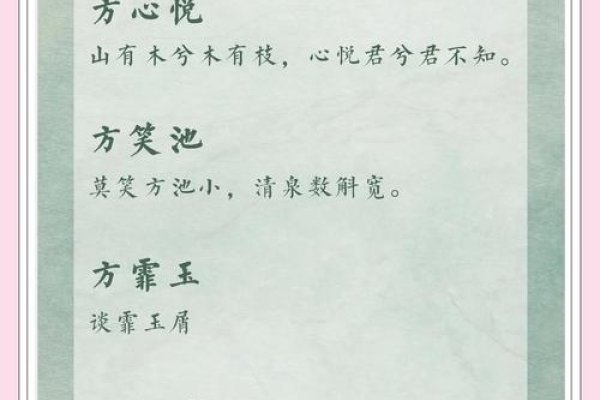 方心悦
山有木兮木有枝，心悦君兮君不知。
方笑池
莫笑方池小，清泉数斛宽。
方霏玉
谈霏玉屑